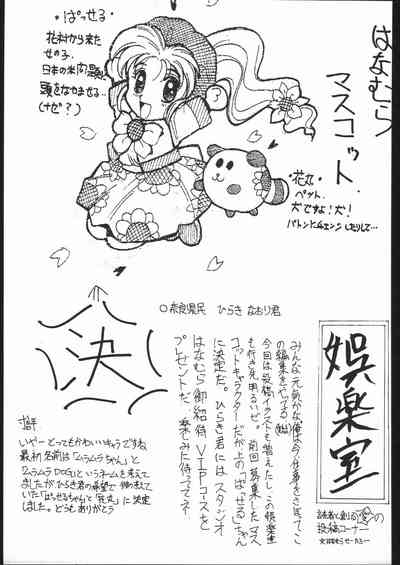 はなむら
マスコット
・ぱっせる・
花村から来た
女の子。
日本の米問題に
頭をなやませる…
(なぜ?)
・花丸・
ペット。
犬ですよ!犬!
バトンにチェンジしたりして…
○奈良県民 ひらき なおり君
娯楽室
読者と創る愛の
投稿コーナー
みんな元気かな俺は今仕事をさぼってこ
の編集をやってる(嘘)
今回は投稿イラストも増えたし、この娯楽室
も行く先明るいぜ。前回募集したマス
コットキャラクターだが上の「ぱっせる」ちゃん
に決定だ。ひらき君にはスタジオ
はなむら御招待VIPコースを
プレゼントだ、楽しみに待っててネ
決
いやーとってもかわいいキャラですね
最初名前は「ムラムラちゃん」と
「ムラムラDOG」というネームを考えて
ましたが、ひらき君の希望で
ていた「ぱっせるちゃん」と「花丸」に決定
しました。どうもありがとう